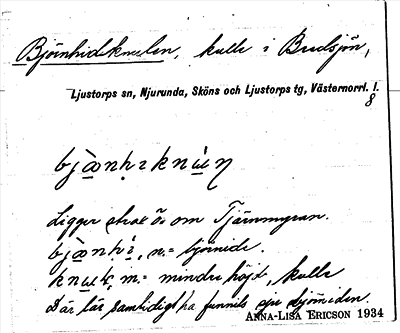 Björnhideknulen, kulle i Bredsjön,
Ljustorps sn, Njurunda, Sköns och Ljustorps tg, Västernorrl. l.
8
Ligger strax Ö. om Tjärnmyran.
n. = björnide.
m. = mindre höjd, kulle
Där lär samtidigt ha funnits sju björniden.
ANNA-LISA ERICSON 1934